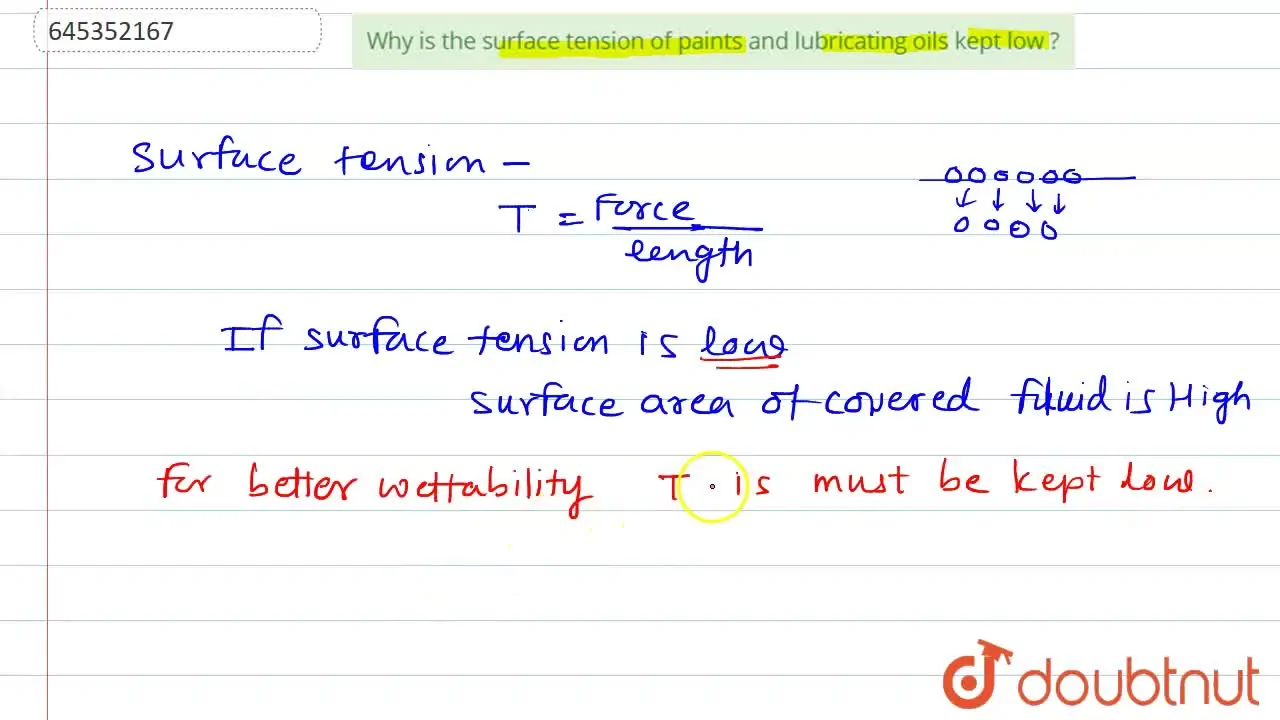 645352167
Why is the surface tension of paints and lubricating oils kept low ?
Surface tension -
T = Force
length
If surface tension is low
surface area of covered fluid is High
for better wettability T is must be kept low.
doubtnut